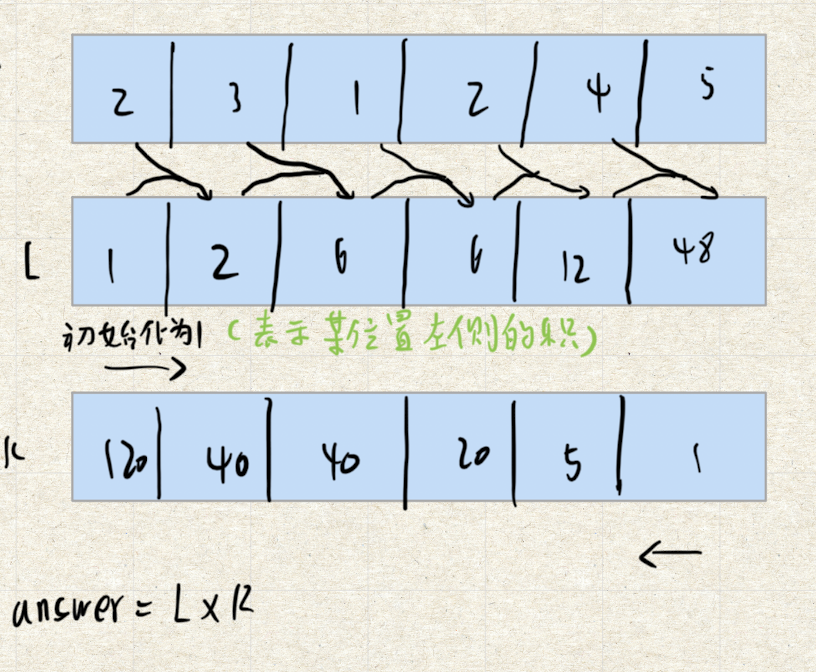 2 3 1 2 4 5
L 1 2 6 6 12 48
初始化为1（表示某位置左侧的积）
R 120 40 40 20 5 1
answer = L x R